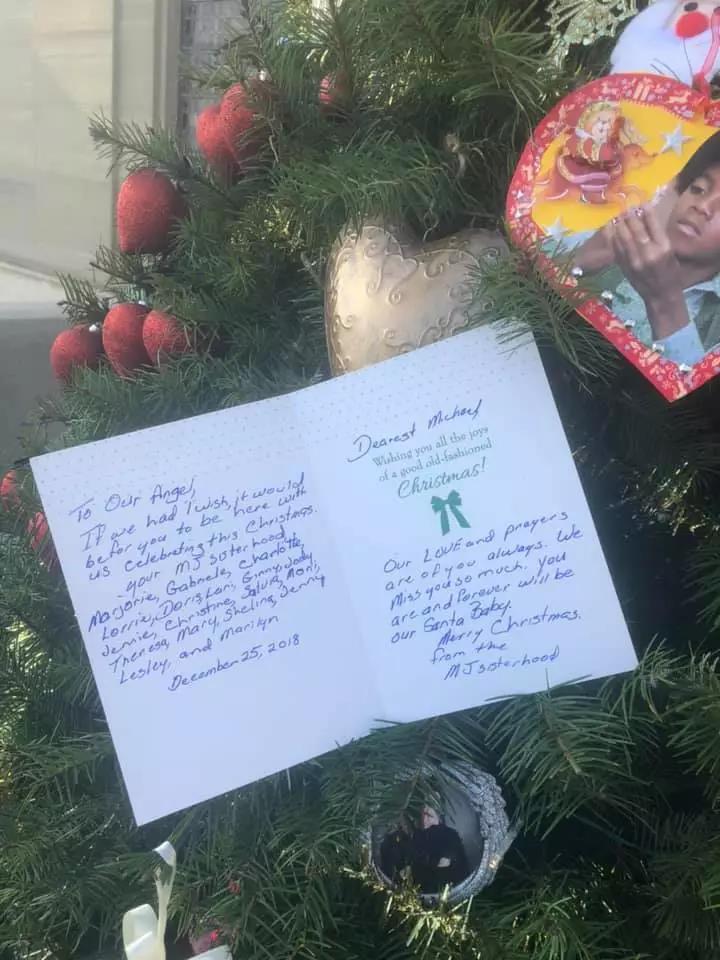 To Our Angel,
If we had 1 wish, it would
be for you to be here with
us celebrating this Christmas.
your MJ sisterhood,
Marjorie, Gabriele, Charlotte,
Lorrie, Doris, Lari, Ginny, Jody,
Jennie, Christine, Salvia, Moni,
Theresa, Mary, Shelina, Jenny
Lesley, and Marilyn
December 25, 2018
Dearest Michael
Wishing you all the joys
of a good old-fashioned
Christmas!
Our LOVE and prayers
are of you always. We
Miss you so much. You
are and forever will be
our Santa Baby.
Merry Christmas.
from the
MJ sisterhood